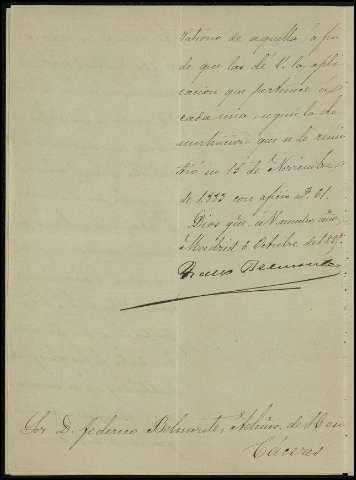 de aquella á fin
de que las dé V. la apli
cacion que pertenece á
cada una, segun la de
que se le remi
tió en 15 de Noviembre
de 1883 con oficio nº. 61.
Dios gũe. á V. muchos años.
Madrid 6 Octubre de
Belmonte
Sor. D. Federico Belmonte, de
Cáceres